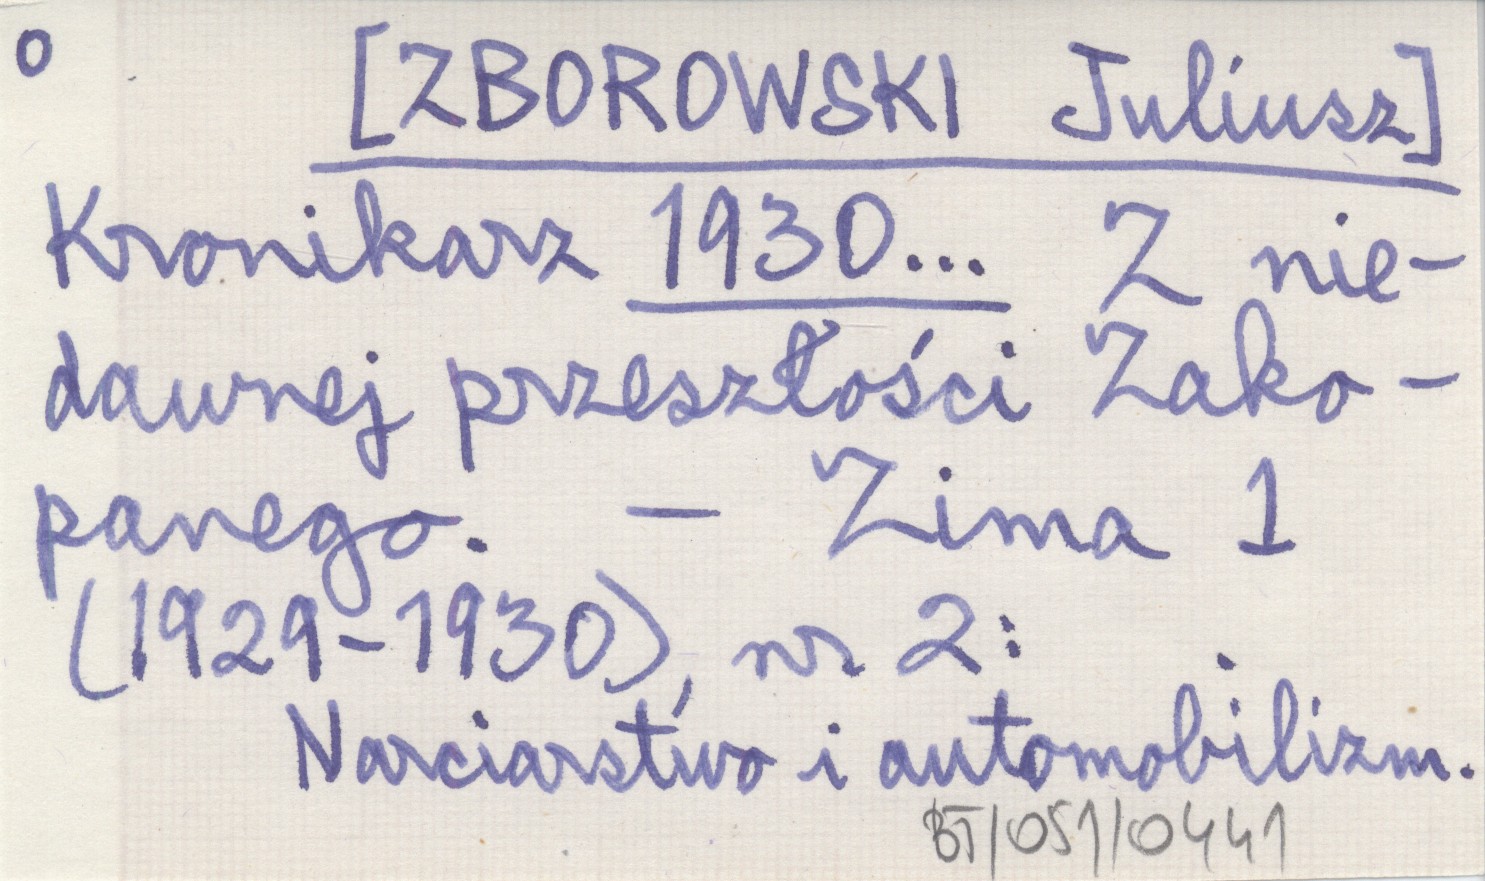 o [ZBOROWSKI Juliusz]
Kronikarz 1930... Z nie-
dawnej przeszłości Zako-
panego. — Zima 1
(1929-1930), nr 2:
Narciarstwo i automobilizm.
BT/051/0441